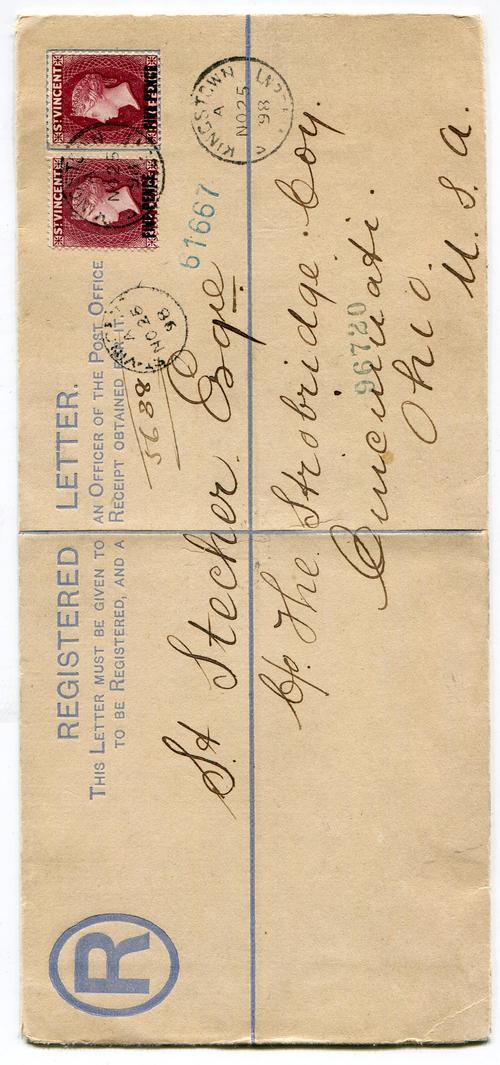 R
REGISTERED LETTER.
THIS LETTER MUST BE GIVEN TO AN OFFICER OF THE POST OFFICE
TO BE REGISTERED, AND A RECEIPT OBTAINED FOR IT.
ST VINCENT
ST VINCENT
KINGSTOWN
A
NO 25
98
61667
A
NO 25
98
5638
96720
St Stecher. Esqre
C/o. The. Strobridge. Coy.
Cincinnati.
Ohio.
U. S. A.